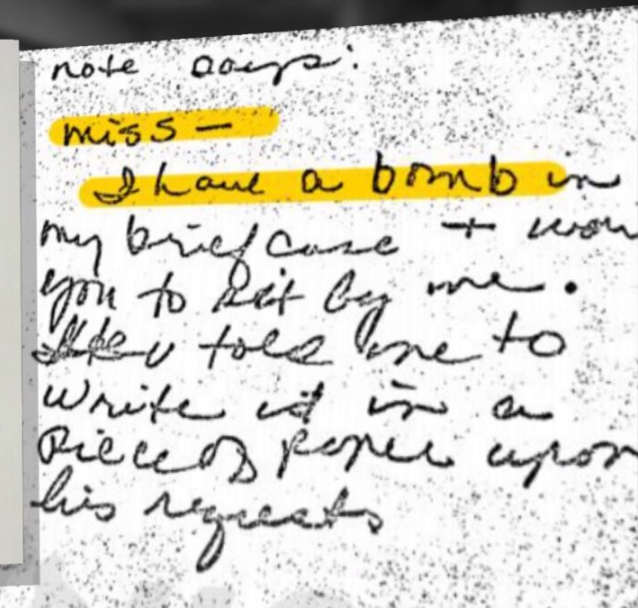 note says:
miss —
I have a bomb in
my briefcase + wan
you to sit by me.
told me to
write it in a
piece of paper upon
his requests